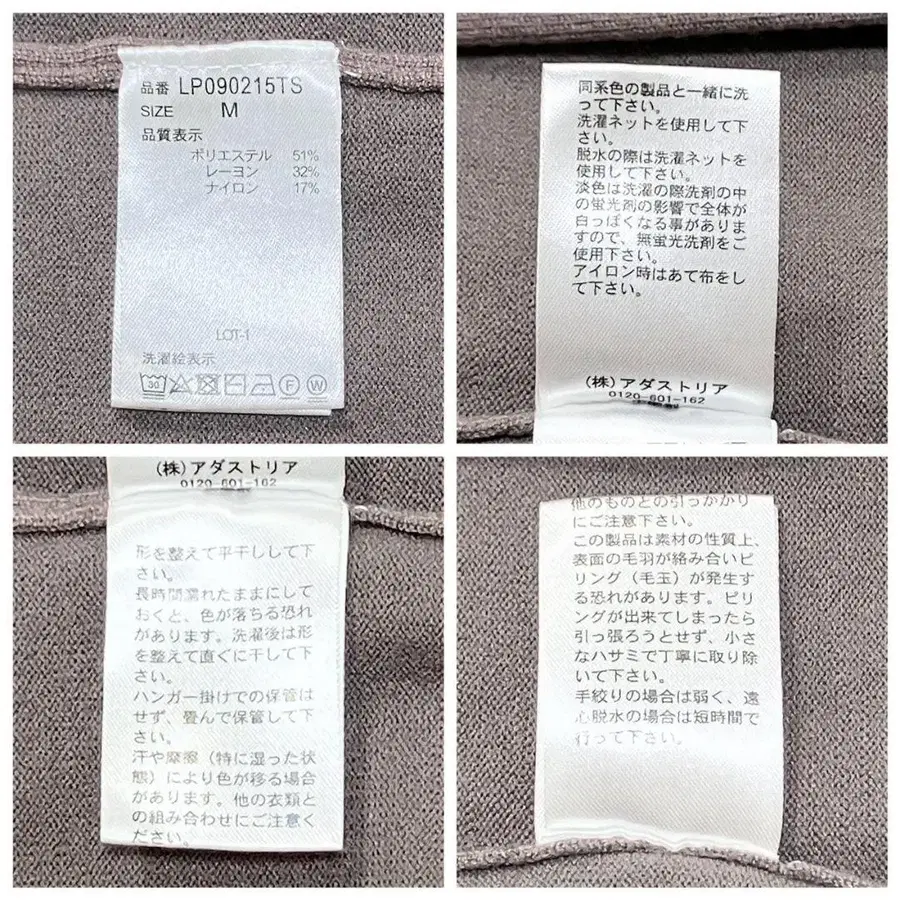 品番 LP090215TS
SIZE M
品質表示
ポリエステル 51%
レーヨン 32%
ナイロン 17%
LOT-1
洗濯絵表示
30
F
W
同系色の製品と一緒に洗
って下さい。
洗濯ネットを使用して下
さい。
脱水の際は洗濯ネットを
使用して下さい。
淡色は洗濯の際洗剤の中
の蛍光剤の影響で全体が
白っぽくなる事がありま
すので、無蛍光洗剤をご
使用下さい。
アイロン時はあて布をし
て下さい。
(株)アダストリア
0120-601-162
(株)アダストリア
0120-601-162
形を整えて平干しして下
さい。
長時間濡れたままにして
おくと、色が落ちる恐れ
があります。洗濯後は形
を整えて直ぐに干して下
さい。
ハンガー掛けでの保管は
せず、畳んで保管して下
さい。
汗や摩擦(特に湿った状
態)により色が移る場合
があります。他の衣類と
の組み合わせにご注意く
ださい。
他のものとの引っかかり
にご注意下さい。
この製品は素材の性質上、
表面の毛羽が絡み合いピ
リング(毛玉)が発生す
る恐れがあります。ピリ
ングが出来てしまったら
引っ張ろうとせず、小さ
なハサミで丁寧に取り除
いて下さい。
手絞りの場合は弱く、遠
心脱水の場合は短時間で
行って下さい。